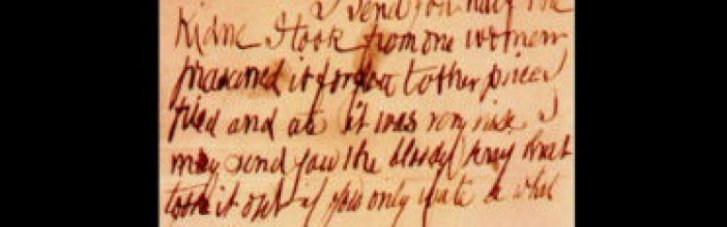 I send you half the
Kidne I took from one women
prasarved it for you tother piece I
fried and ate it was very nise. I
may send you the bloody knif that
took it out if you only wate a whil